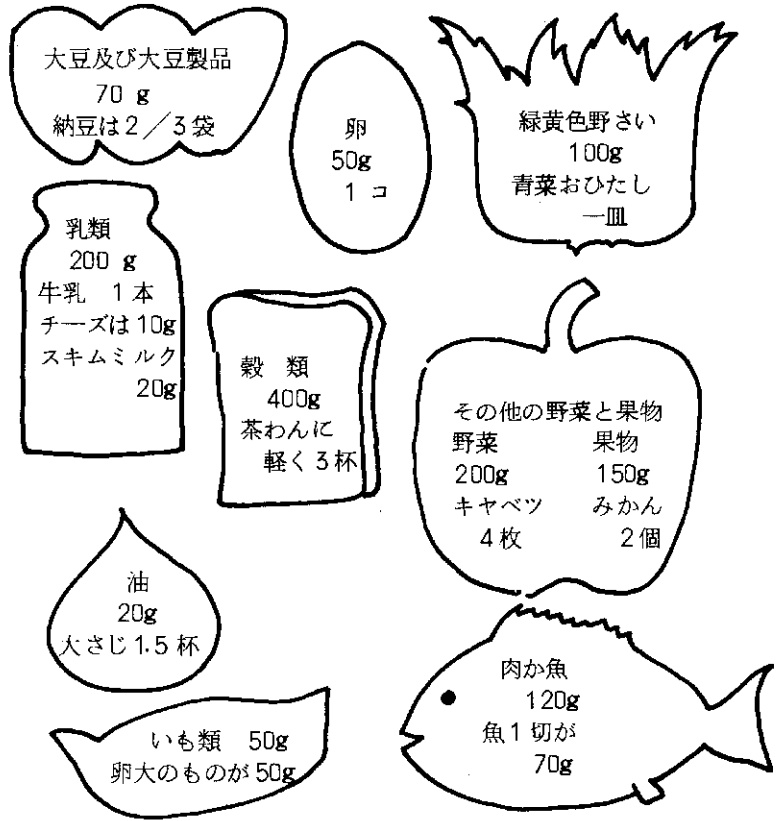 大豆及び大豆製品
70 g
納豆は2／3袋
卵
50g
1 コ
緑黄色野さい
100g
青菜おひたし
一皿
乳類
200 g
牛乳 1本
チーズは10g
スキムミルク
20g
穀 類
400g
茶わんに
軽く3杯
その他の野菜と果物
野菜 果物
200g 150g
キヤベツ みかん
4枚 2個
油
20g
大さじ1.5杯
肉か魚
120g
魚1切が
70g
いも類 50g
卵大のものが50g